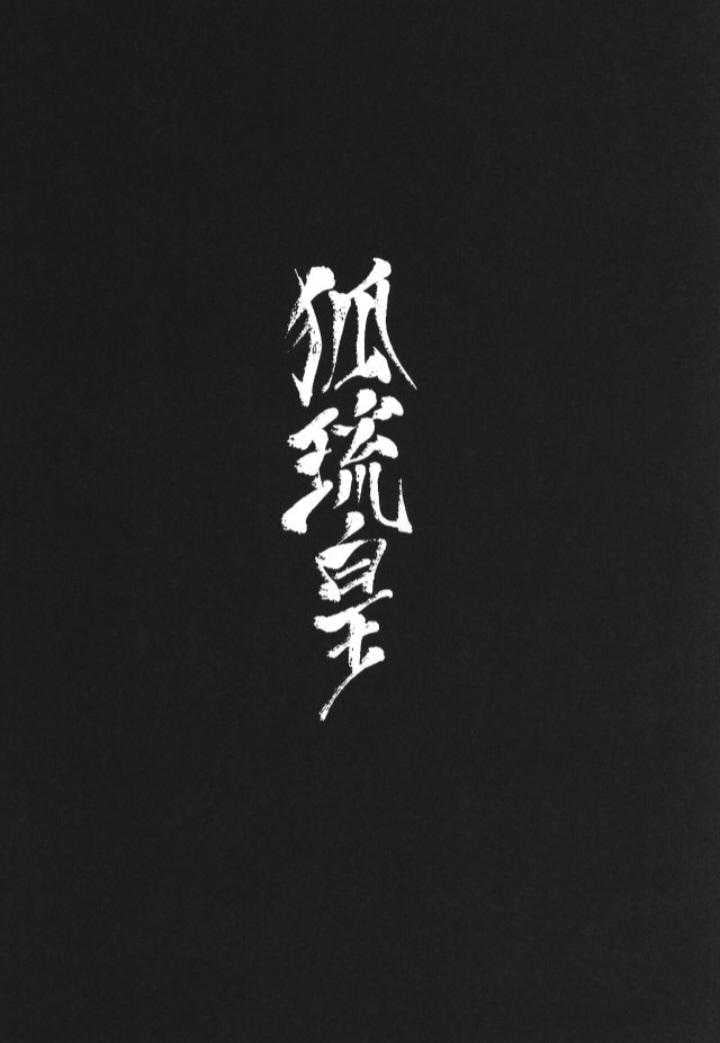 狐琉皇